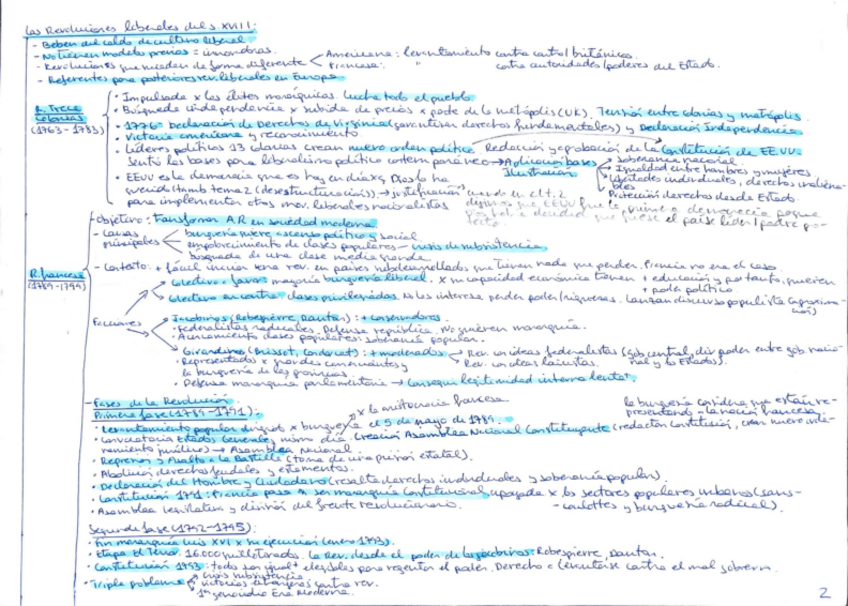 Las Revoluciones liberales del s. XVIII:
- Beben del caldo de cultivo liberal
- No tienen modelo previo = innovadoras.
- Revoluciones que suceden de forma diferente < Americana: levantamiento contra control británico.
Francesa: " contra autoridades/poderes del Estado.
- Referentes para posteriores rev. liberales en Europa
R. Trece Colonias (1763-1783)
· Impulsada x las élites monárquicas. Lucha todo el pueblo
· Búsqueda independencia x subida de precios x parte de la metrópolis (UK). Tensión entre colonias y metrópolis.
· 1776 Declaración de Derechos de Virginia (garantizan derechos fundamentales) y Declaración Independencia
· Victoria americana y reconocimiento
· Líderes políticos 13 colonias crean nuevo orden político. Redacción y aprobación de la Constitución de EE.UU.
Sentó las bases para liberalismo político contemporáneo → Aplicaron bases Ilustración
soberanía nacional.
Igualdad entre hombres y mujeres
Libertades individuales, derechos inalienables
Protección derechos desde Estado.
· EEUU es la democracia que es hoy en día xq Dios lo ha
querido (tamb tema 2 (desestructuración)) → justificación
para implementar otros mov. liberales nacionalistas
cuando en el t.2
digamos que EEUU fue la primera democracia porque
R. francesa (1789-1799)
- Objetivo: transformar A.R en sociedad moderna
- Causas principales
burguesía quiere ascenso político y social
empobrecimiento de clases populares - crisis de subsistencia
búsqueda de una clase media grande
- Contexto: + fácil iniciar una rev. en países subdesarrollados que tienen nada que perder. Francia no era el caso.
Facciones
Colectivo a favor: mayoría burguesía liberal. X su capacidad económica tienen + educación y por tanto, quieren + poder político
Colectivo en contra: clases privilegiadas. No les interesa perder poder/riquezas. Lanzan discurso populista
Jacobinos (Robespierre, Danton): + conservadores.
· Federalistas radicales. Defensa república. No quieren monarquía.
· Acercamiento clases populares: soberanía popular.
Girondinos (Brissot, Condorcet): + moderados → Rev. con ideas federalistas (gob central, div poder entre gob nacional y los Estados).
Rev. con ideas laicistas.
· Representados x grandes comerciantes y
la burguesía de las provincias.
· Defensa monarquía parlamentaria → Consegui legitimidad interna lenta
- Fases de la Revolución
Primera fase (1789-1791):
x la aristocracia francesa
· Levantamiento popular dirigido x burguesía el 5 de mayo de 1789.
la burguesía considera que están representando a la nación francesa.
· Convocatoria Estados Generales y mismo día. Creación Asamblea Nacional Constituyente (redactan Constitución, crean nuevo ordenamiento jurídico) → Asamblea Nacional
· Represión y Asalto a la Bastilla (toma de una prisión estatal).
· Abolición derechos feudales y estamentos.
· Declaración del Hombre y Ciudadano (resalta derechos individuales y soberanía popular)
· Constitución 1791: Francia pasa a ser monarquía Constitucional, apoyada x los sectores populares urbanos (sans-culottes y burguesía radical).
· Asamblea Legislativa y división del frente revolucionario.
Segunda fase (1792-1795):
· Fin monarquía Luis XVI x su ejecución (enero 1793).
· Etapa El Terror. 16.000 guillotinados. La Rev. desde el poder de los jacobinos: Robespierre, Danton.
· Constitución 1793: todos por igual elegibles para regentar el poder. Derecho a levantarse contra el mal gobierno.
· Triple problema
crisis subsistencia
victorias extranjeras contra rev.
1er genocidio Era Moderna.
2